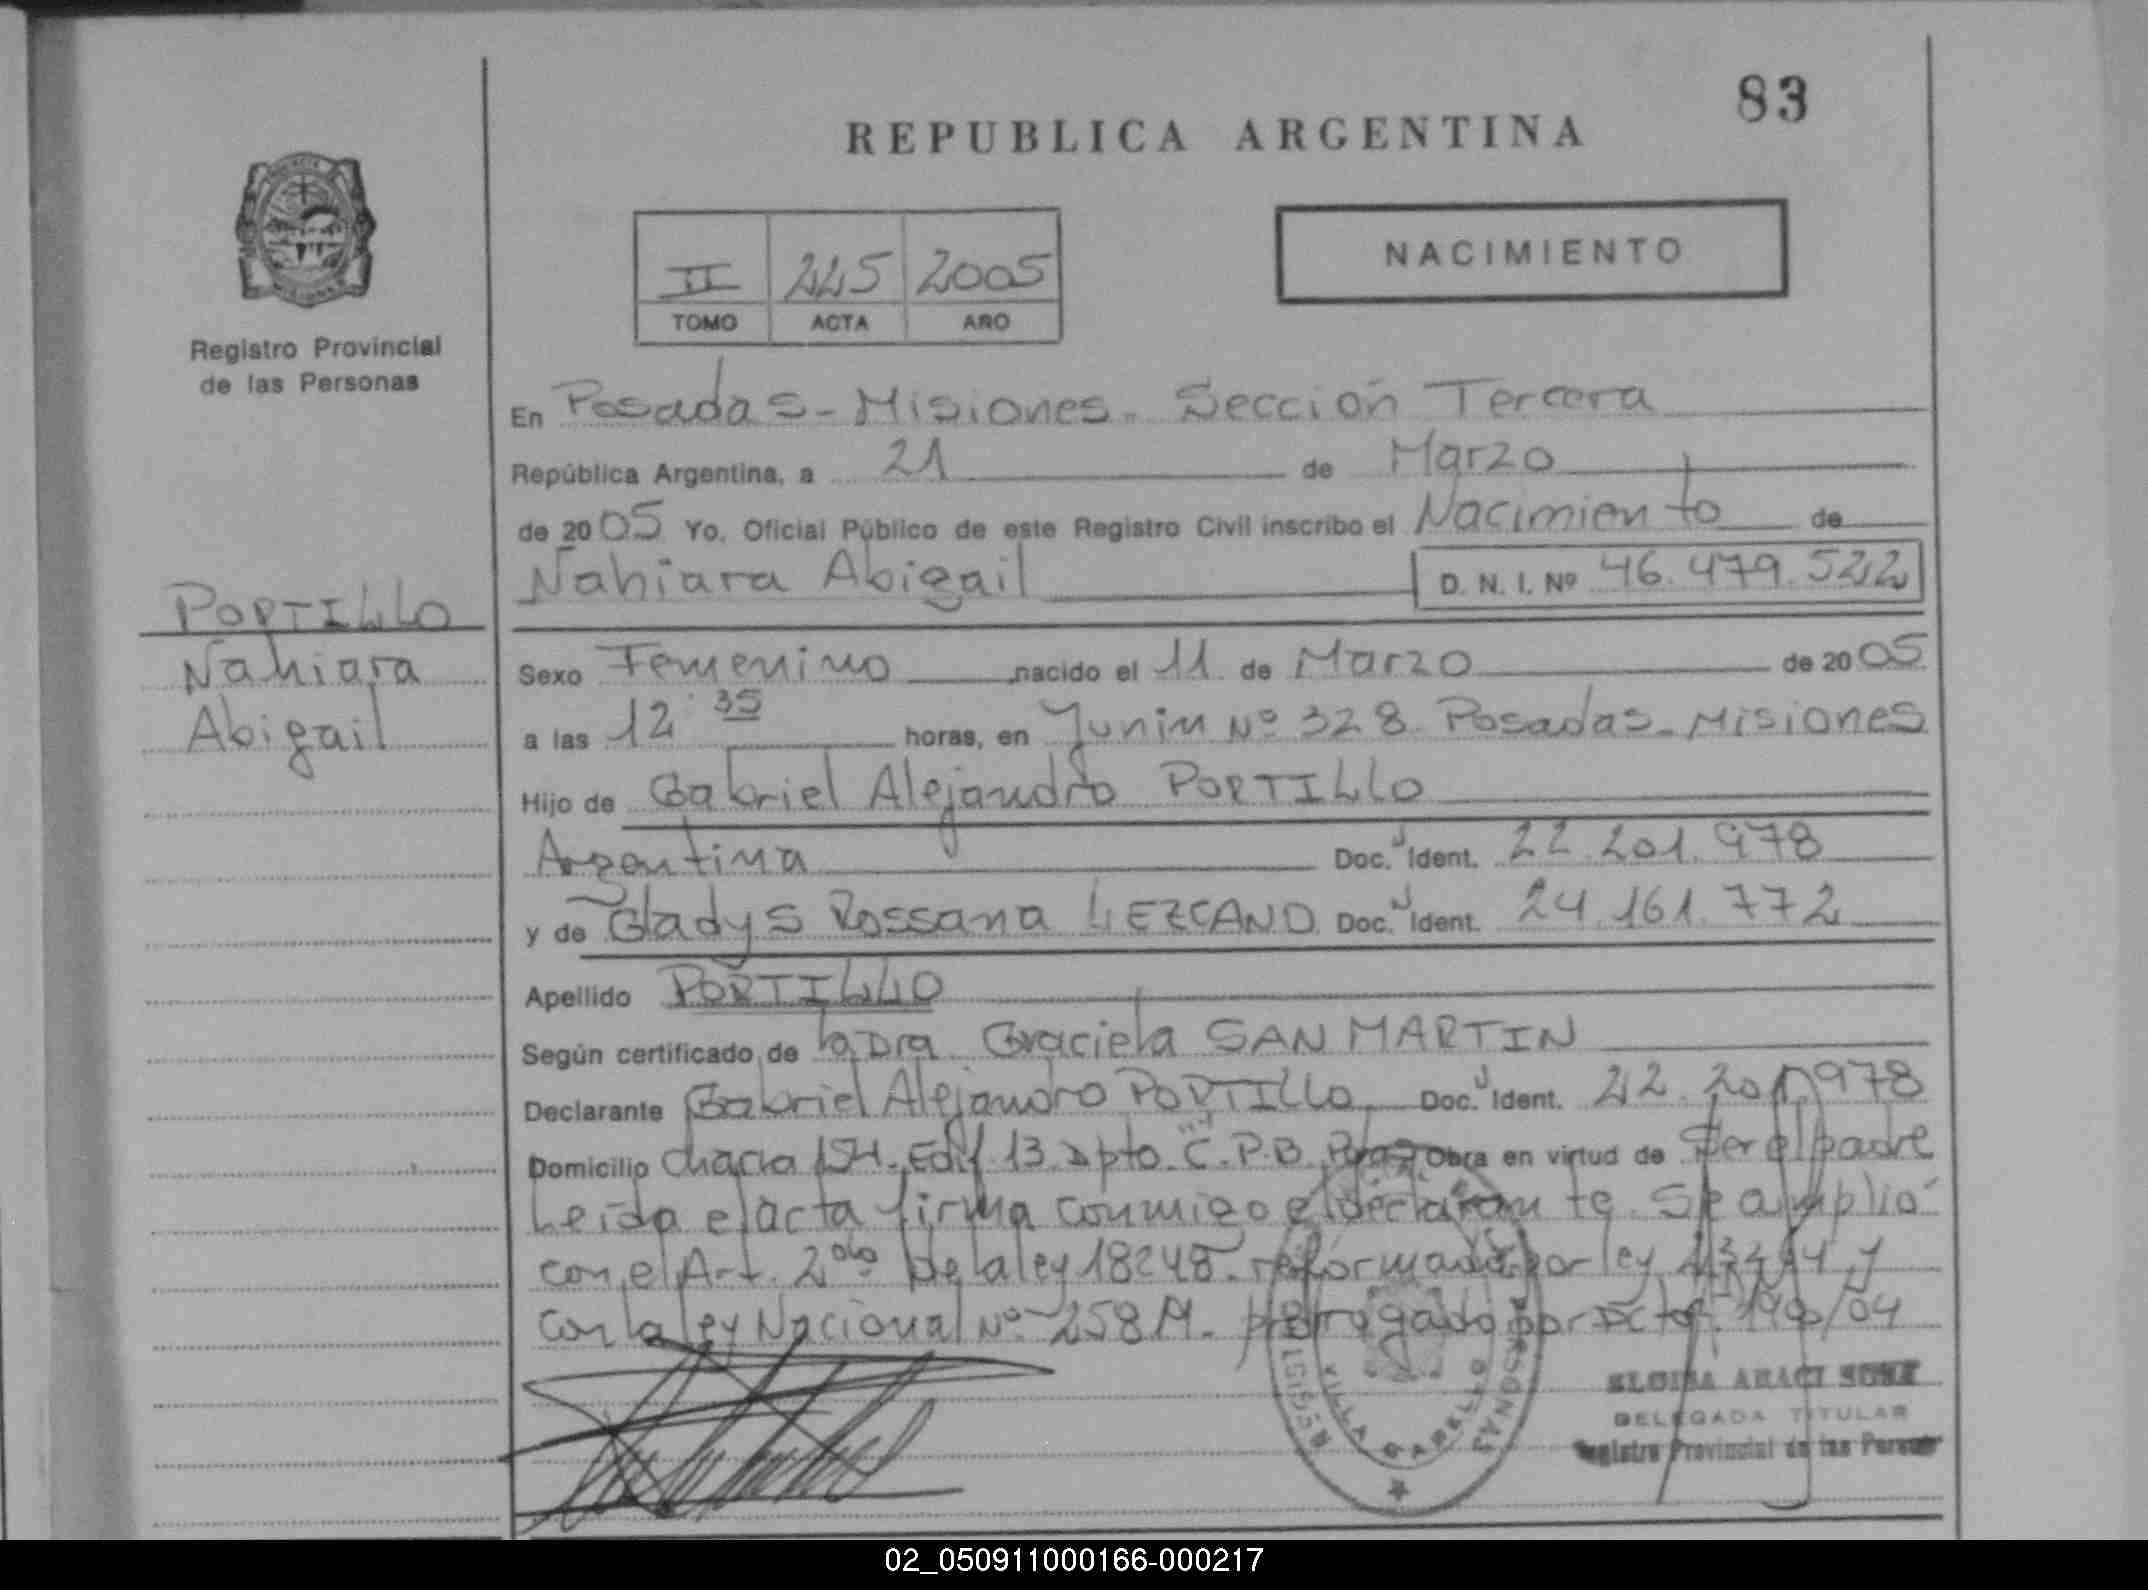 83
REPUBLICA ARGENTINA
NACIMIENTO
II 225 2005
TOMO ACTA AÑO
Registro Provincial
de las Personas
En Posadas - Misiones. Sección Tercera
República Argentina, a 21 de Marzo
de 2005 Yo. Oficial Público de este Registro Civil inscribo el Nacimiento de
Nahiara Abigail D. N. I. Nº 46.479.522
PORTILLO
Nahiara
Abigail
Sexo Femenino nacido el 11 de Marzo de 2005
a las 12 35 horas, en Junin Nº 328 Posadas - Misiones
Hijo de Gabriel Alejandro PORTILLO
Argentina Doc. Ident. 22.201.978
y de Gladys Rossana LEZCANO Doc. Ident. 24.161.772
Apellido PORTILLO
Según certificado de la Dra. Graciela SAN MARTIN
Declarante Gabriel Alejandro PORTILLO Doc. Ident. 22.201.978
Domicilio chacra 154. Edif. 13 Dpto. "C". P.B. Obra en virtud de Ser el padre
Leida el acta firma conmigo el declarante. Se amplió
con el Art. 2do de la ley 18248. reformada por ley y
con la ley Nacional Nº 25819. prorrogado por Dcto.
VILLA SARELLO
ELOISA ARACI
DELEGADA TITULAR
Registro Provincial de las Personas
02_050911000166-000217